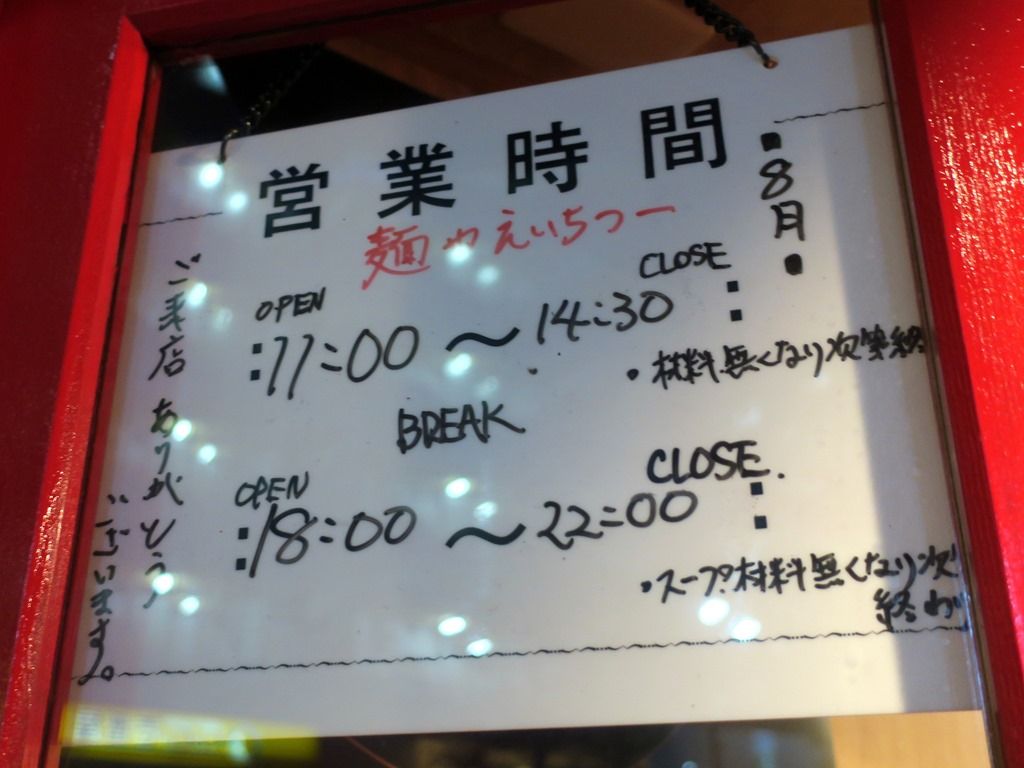 営業時間
・8月・
麺やえいちつー
OPEN
CLOSE
:11:00 ～ 14:30 :
・材料無くなり次第終
BREAK
OPEN
CLOSE.
:18:00 ～ 22:00 :
・スープ材料無くなり次
終わり
ご来店 ありがとう
ございます。